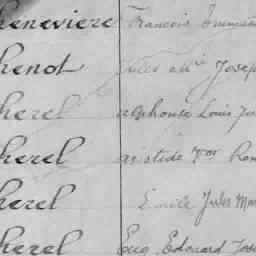 heneviere François Emmanu
henot Jules Mie Josep
herel alphonse Louis Ju
herel aristide Vor Ren
herel Emile Jules Mar
herel Eug Edouard Jose